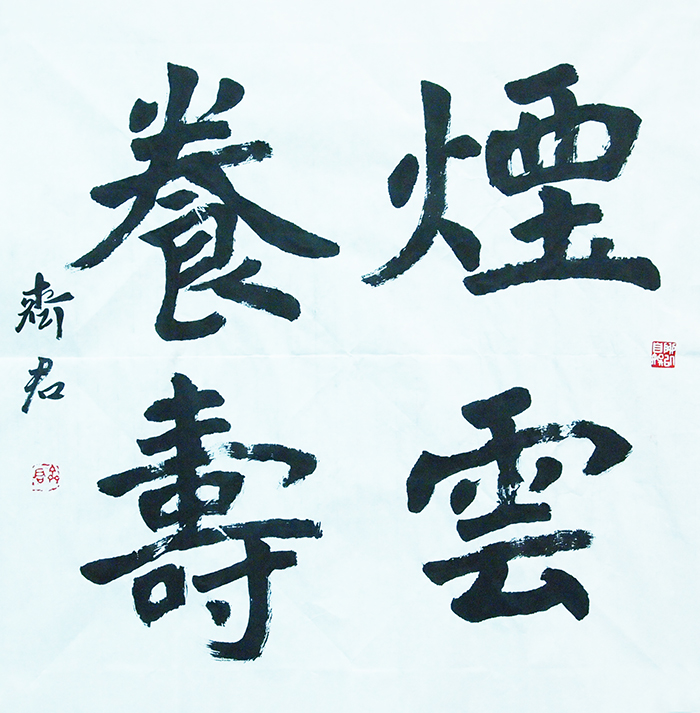 煙雲
養壽
齊君